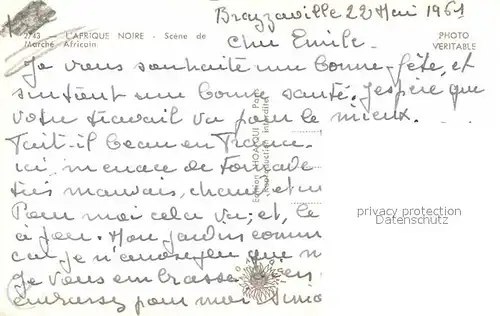 Brazzaville 22 Mai 1961
2743 - L'AFRIQUE NOIRE - Scène de
Marché Africain
PHOTO
VERITABLE
Cher Emile.
Je vous souhaite une bonne fête, et
surtout une bonne santé. J'espère que
votre travail va pour le mieux.
Fait-il beau en France.
ici, menace de Tornade
très mauvais, chaud et
Pour moi cela va; et, le
à jour. Mon jardin comm
car je n'
Je vous embrasse
embrassez pour moi
Edition HOA-QUI
privacy protection
Datenschutz